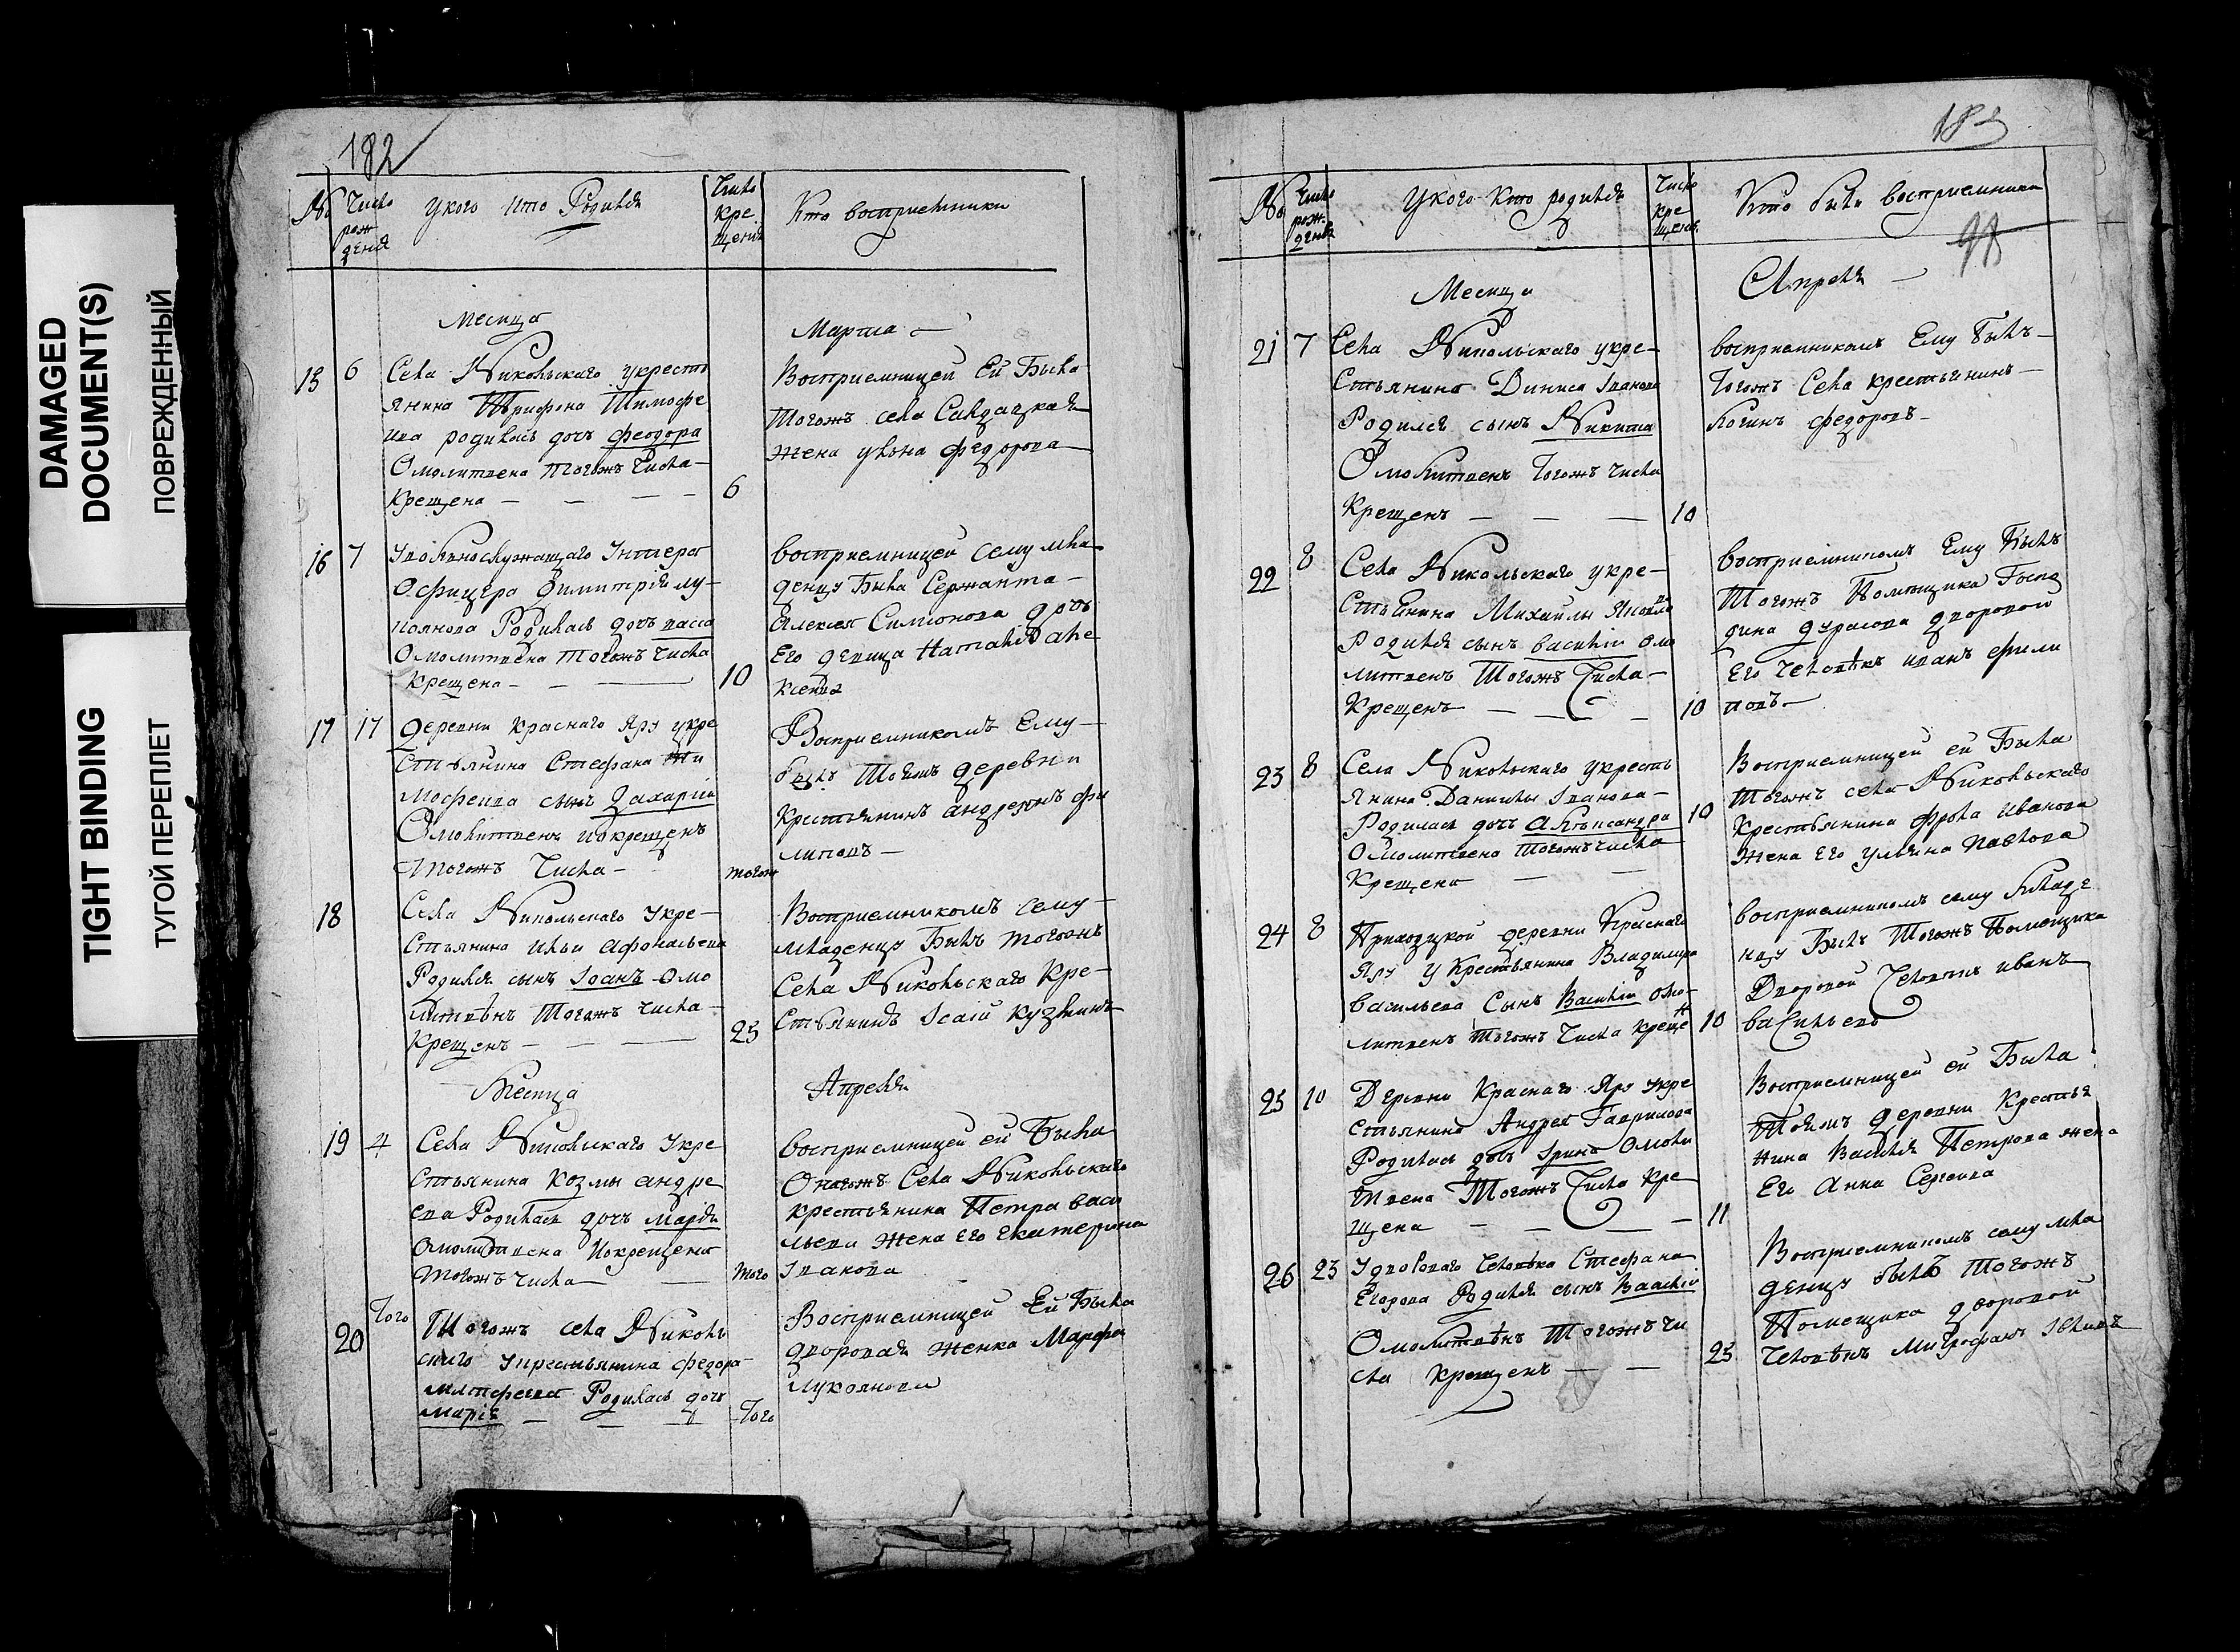 DAMAGED
DOCUMENT(S)
ПОВРЕЖДЕННЫЙ
TIGHT BINDING
ТУГОЙ ПЕРЕПЛЕТ
182
№ Число рождения У кого кто Родился Число крещения Кто восприемники
Месяца Марта
15 6 Села Никольскаго укресть
янина Трифона Тимофе
ива родилась дочь Феодора
Омолитвена тогожъ числа
крещена 6
Восприемницей Ей Была
тогожъ села Салдацкая
жена Ульяна Федорова
16 7 Унтера
Офицера Димитрія Лу
Родилась дочь
Омолитвена тогожъ числа
крещена 10
восприемницей сему мла
денцу Была Сержанта
Алексея Симионова дочь
Его девица Наталія Але
17 17 деревни Краснаго Яру укре
стьянина Стефана Ти
мофеива сынъ Захарий
Омолитвенъ и окрещенъ
тогожъ числа тогож
Восприемникомъ Ему
былъ тогожъ деревни
крестьянинъ Андреянъ Фи
липовъ
18 Села Никольскаго укре
стьянина Ильи Афонасьева
Родился сынъ Іоанъ Омо
литвенъ тогожъ числа
крещенъ 25
Восприемникомъ сему
младенцу Былъ тогожъ
Села Никольскаго кре
стьянинъ Ісай Кузминъ
Месяца Апреля
19 4 Села Никольскаго укре
стьянина Козмы Андре
ева Родилась дочь
Омолитвена и окрещена
тогожъ числа того
восприемницей ей Была
Оногожъ Села Никольскаго
крестьянина Петра Васи
льева жена Его Екатерина
Іванова
20 того Тогожъ села Николь
скаго укрестьянина Федора
Родилась дочь
Марія того
Восприемницей Ей Была
дворовая женка Марфа
Лукоянова
183
98
№ Число рождения У кого кто родился Число крещения Кто были восприемники
Месяца Апреля
21 7 Села Никольскаго укре
стьянина Диниса Іванова
Родился сынъ Никита
Омолитвенъ тогожъ числа
крещенъ 10
восприемникомъ Ему былъ
тогожъ Села крестьянинъ
Логинъ Федоровъ
22 8 Села Никольскаго укре
стьянина Михайлы
Родился сынъ Василій Омо
литвенъ тогожъ числа
крещенъ 10
восприемникомъ Ему Былъ
тогожъ Помещика Госпо
дина Дурасова дворовой
Его человѣкъ иванъ Фили
повъ
23 8 Села Никольскаго укресть
янина Данилы Іванова
Родилась дочь Александра 10
Омолитвена тогожъ числа
крещена
Восприемницей ей Была
тогожъ села Никольскаго
крестьянина Фрола Иванова
жена Его Ульяна Павлова
24 8 Приходцкой деревни Краснаго
Яру у крестьянина Владимира
Васильева Сынъ Василій Омо
литвенъ тогожъ числа крещен 10
восприемникомъ сему младе
нцу Былъ тогожъ Помещика
Дворовой человекъ иванъ
Васильевъ
25 10 Деревни Краснаго Яру укре
стьянина Андрея Гаврилова
Родилась дочь Ірина Омоли
твена тогожъ числа кре
щена 11
Восприемницей ей Была
тояжъ деревни крестья
нина Василя Петрова жена
Его Анна Сергеива
26 23 У дворового человѣка Стефана
Егорова Родился сынъ Василій
Омолитвѣнъ тогожъ чи
сла крещенъ 25
Восприемникомъ сему мла
денцу былъ тогожъ
Помещика дворовой
человѣкъ Митрофанъ